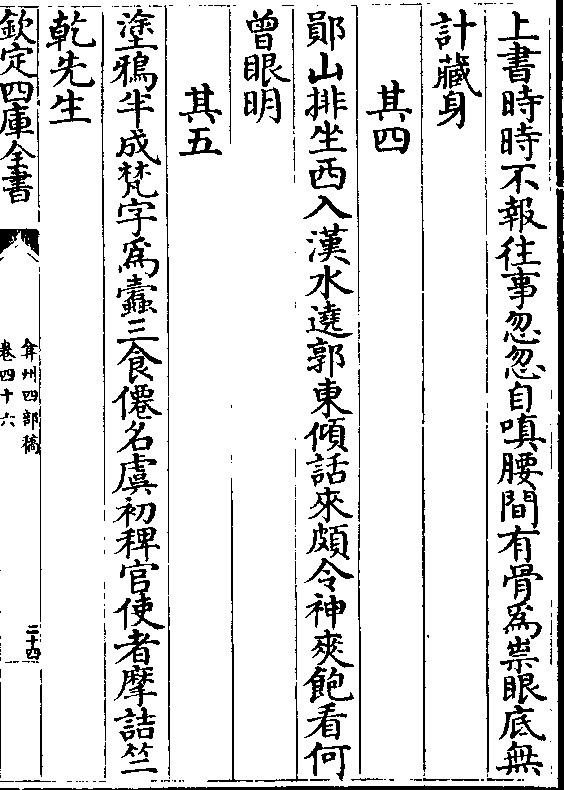 上書時時不報往事忽忽自嗔腰間有骨為祟眼底無
計藏身
其四
鄖山排坐西入漢水遶郭東傾話來頗令神爽飽看何
曾眼明
其五
塗鴉半成梵字為蠹三食僊名虞初稗官使者摩詰竺
乾先生
欽定四庫全書
弇州四部稿
卷四十六
二十四